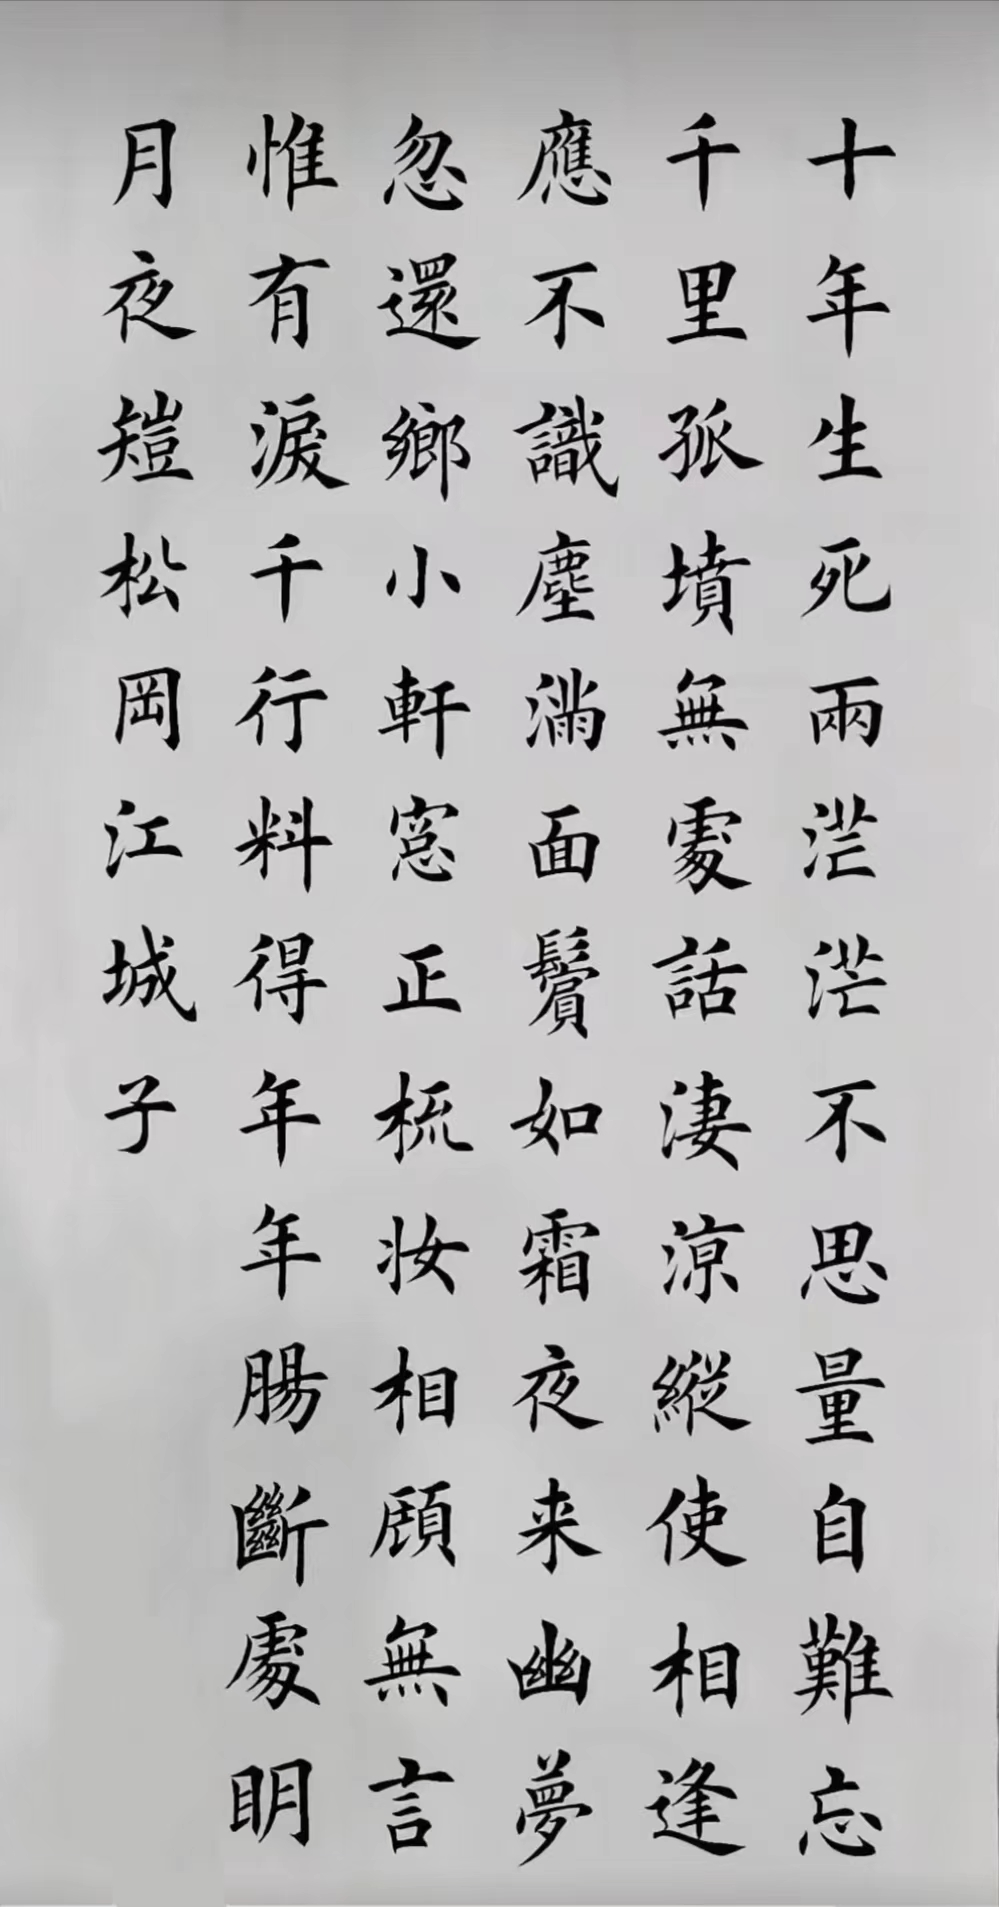 十年生死兩茫茫不思量自難忘
千里孤墳無處話淒涼縱使相逢
應不識塵滿面鬢如霜夜来幽夢
忽還鄉小軒窓正梳妝相顧無言
惟有淚千行料得年年腸斷處明
月夜短松岡江城子